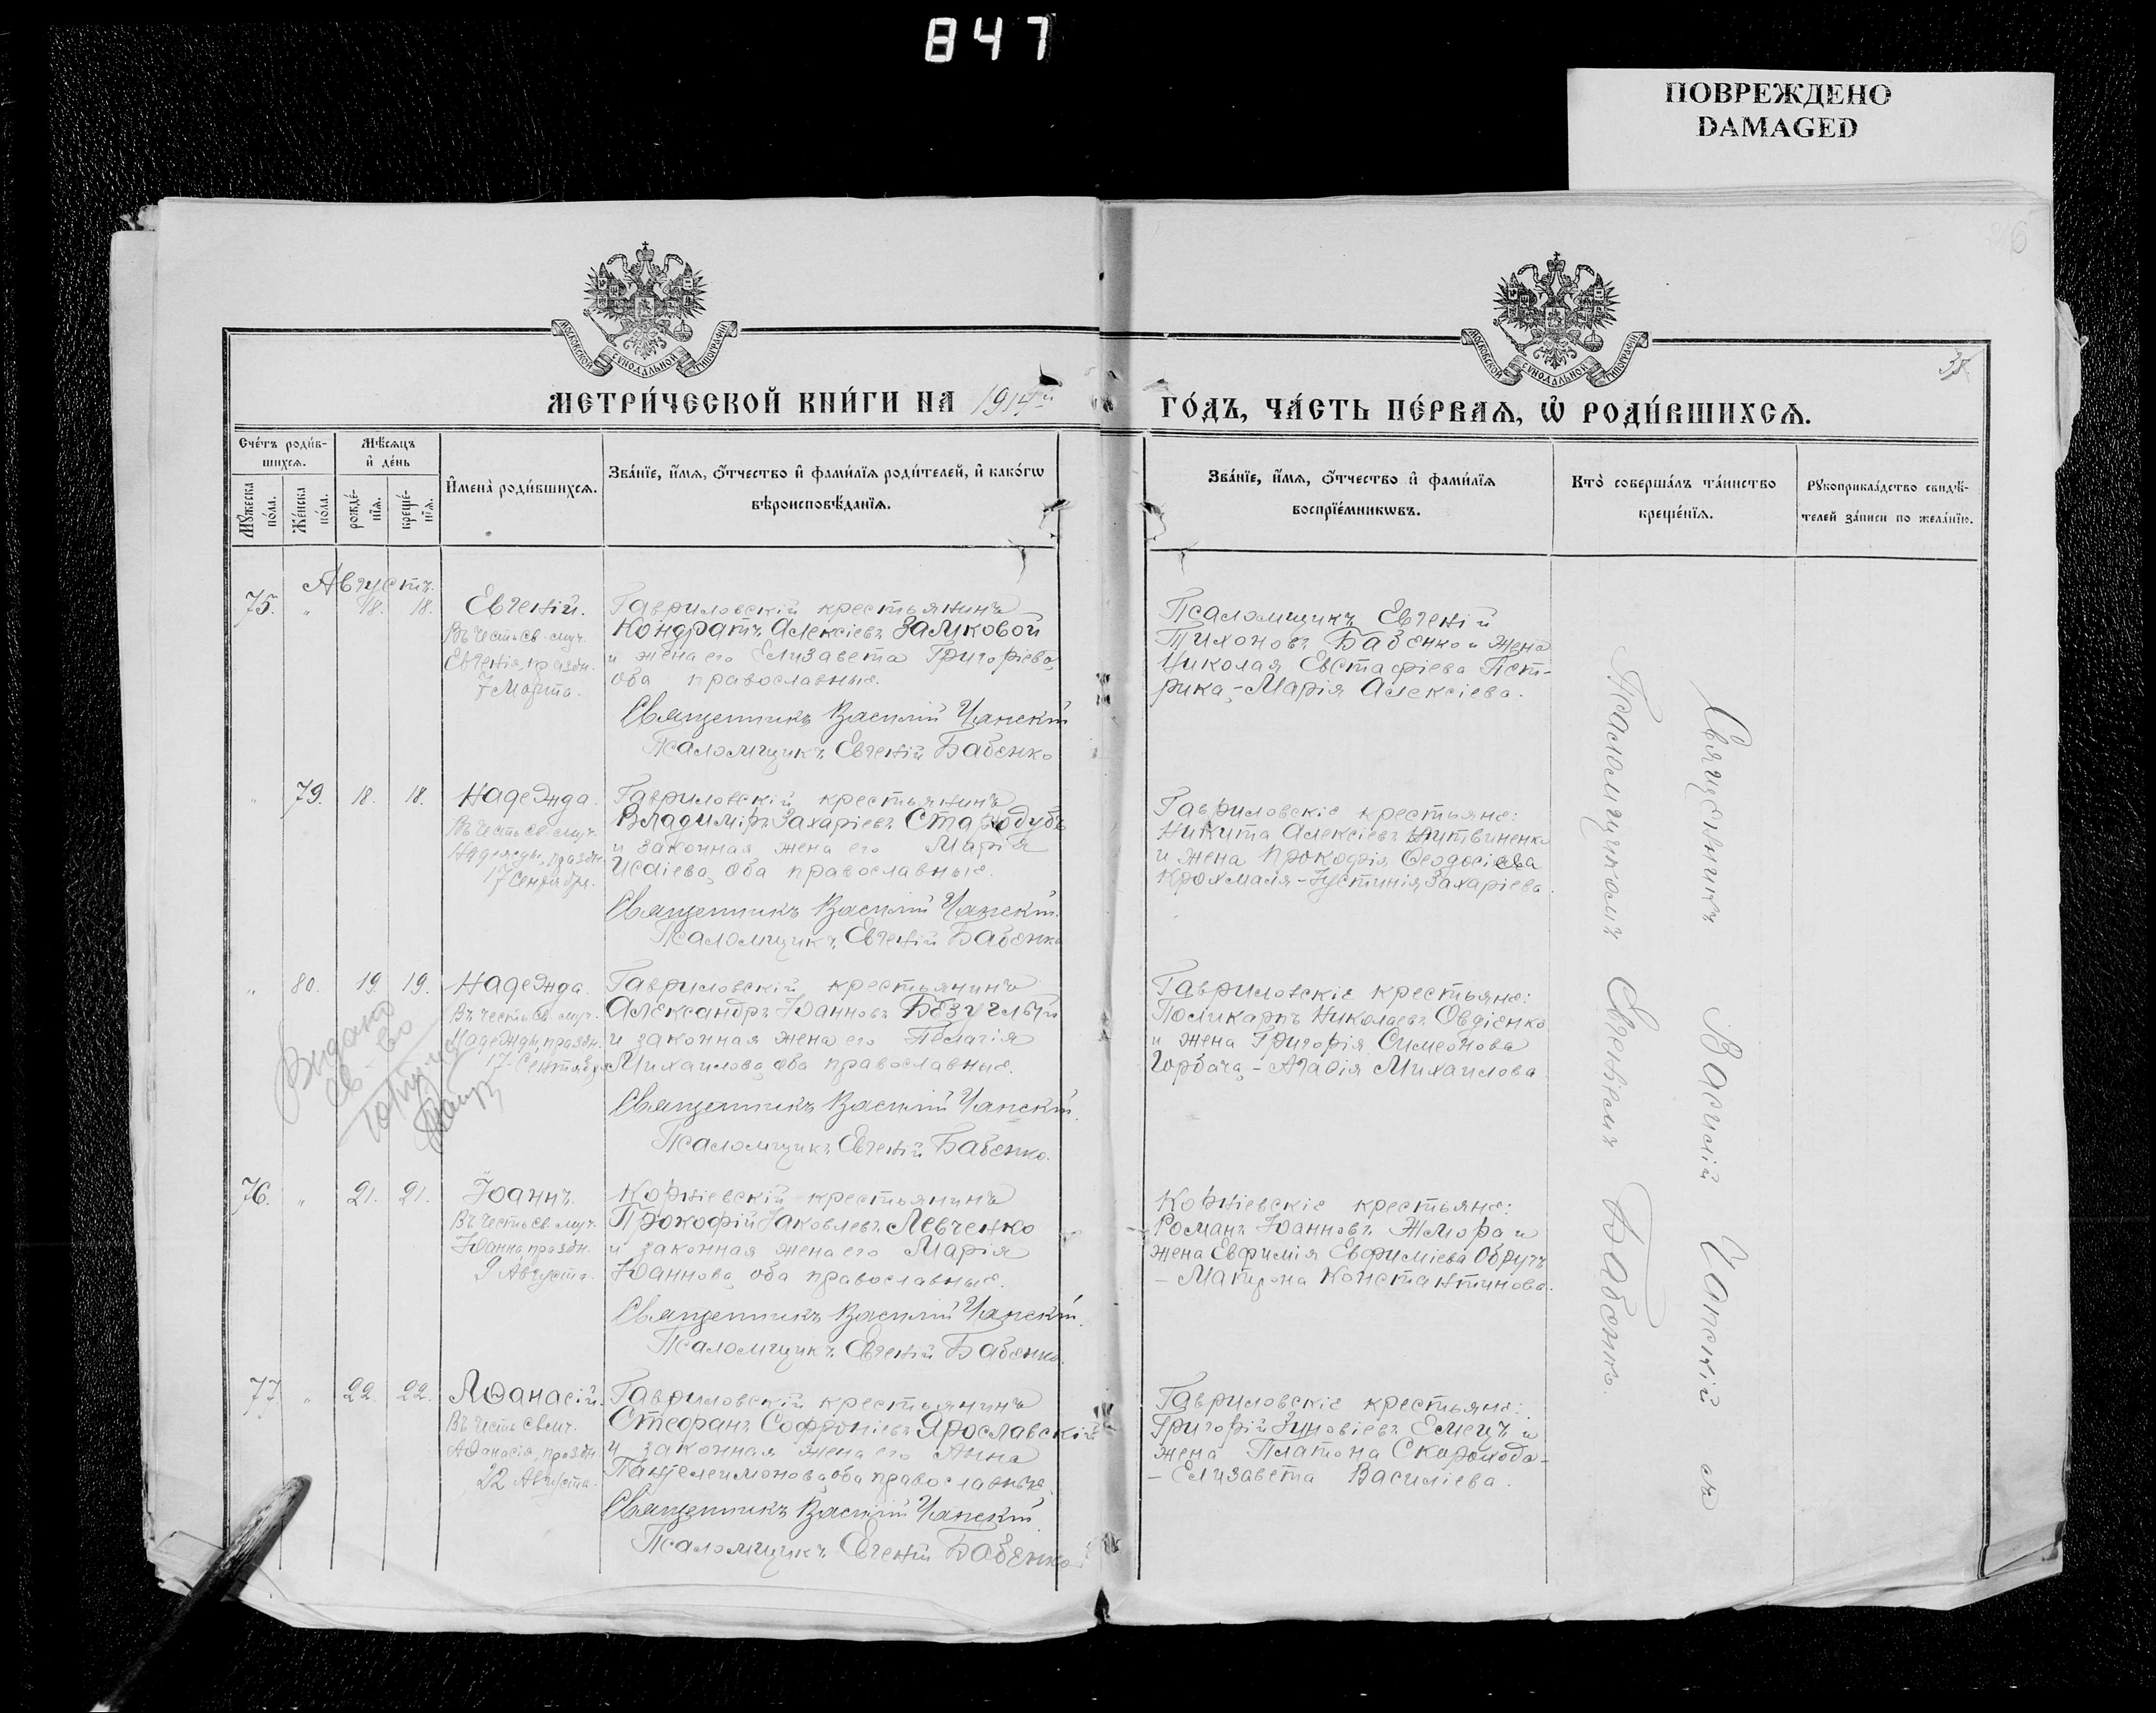 847
ПОВРЕЖДЕНО
DAMAGED
МОСКОВСКОЙ СѴНОДАЛЬНОЙ ТИПОГРАФІИ
МОСКОВСКОЙ СѴНОДАЛЬНОЙ ТИПОГРАФІИ
МЕТРИ́ЧЕСКОЙ КНИ́ГИ НА 1914й
ГО́ДЪ, ЧА́СТЬ ПЕ́РВАѦ, Ѡ҆ РОДИ́ВШИХСѦ.
Сче́тъ роди́в-
шихсѧ.
Мѣ́сѧцъ
и҆ де́нь
Мꙋ́жеска
по́ла.
Же́нска
по́ла.
рожде́-
нїѧ.
креще́-
нїѧ.
И҆мена̀ роди́вшихсѧ.
Зва́нїе, и҆́мѧ, ѻ҆́тчество и҆ фами́лїѧ роди́телей, и҆ како́гѡ
вѣроисповѣ́данїѧ.
Зва́нїе, и҆́мѧ, ѻ҆́тчество и҆ фами́лїѧ
воспрїе́мникѡвъ.
Кто̀ соверша́лъ та́инство
креще́нїѧ.
Рꙋкоприкла́дство свидѣ́-
телей за́писи по жела́нїю.
Августъ.
75. " 18. 18. Евгеній.
Въ честь св. муч.
Евгенія, праздн.
7 Марта.
Гавриловскій крестьянинъ
Кондратъ Алексіевъ Заликовой
и жена его Елизавета Григоріева,
оба православные.
Священникъ Василій Чанскій
Псаломщикъ Евгеній Бабенко
Псаломщикъ Евгеній
Тихоновъ Бабенко и жена
Николая Евстафіева Пет-
рика, - Марія Алексіева.
" 79. 18. 18. Надежда.
Въ честь св. муч.
Надежды, праздн.
17 Сентября.
Гавриловскій крестьянинъ
Владиміръ Захаріевъ Стародубъ
и законная жена его Марія
Исаіева, оба православные.
Священникъ Василій Чанскій.
Псаломщикъ Евгеній Бабенко
Гавриловскіе крестьяне:
Никита Алексіевъ Литвиненко
и жена Прокофія Ѳеодосіева
Крохмаля - Іустинія Захаріева.
" 80. 19. 19. Надежда.
Въ честь св. муч.
Надежды, праздн.
17 Сентября
Гавриловскій крестьянинъ
Александръ Іоанновъ Безуглый
и законная жена его Пелагія
Михаилова, оба православные.
Священникъ Василій Чанскій.
Псаломщикъ Евгеній Бабенко.
Гавриловскіе крестьяне:
Поликарпъ Николаевъ Овдіенко
и жена Григорія Симеонова
Горбача, - Агаѳія Михаилова
Видано
св-во
76. " 21. 21. Іоаннъ.
Въ честь св. муч.
Іоанна, праздн.
9 Августа.
Коржіевскій крестьянинъ
Прокофій Іаковлевъ Левченко
и законная жена его Марія
Іоаннова, оба православные.
Священникъ Василій Чанскій.
Псаломщикъ Евгеній Бабенко.
Коржіевскіе крестьяне:
Романъ Іоанновъ Жмора и
жена Евфимія Евфиміева Обручъ
- Матрона Константинова.
77. " 22. 22. Аѳанасій.
Въ честь Свмч.
Аѳанасія, праздн.
22 Августа.
Гавриловскій крестьянинъ
Стефанъ Софроніевъ Ярославскій
и законная жена его Анна
Пантелеимонова, оба православные.
Священникъ Василій Чанскій.
Псаломщикъ Евгеній Бабенко
Гавриловскіе крестьяне:
Григорій Зиновіевъ Емецъ и
жена Платона Скорохода-
- Елизавета Василіева.
Священникъ Василій Чанскій съ
Псаломщикомъ Евгеніемъ Бабенко.